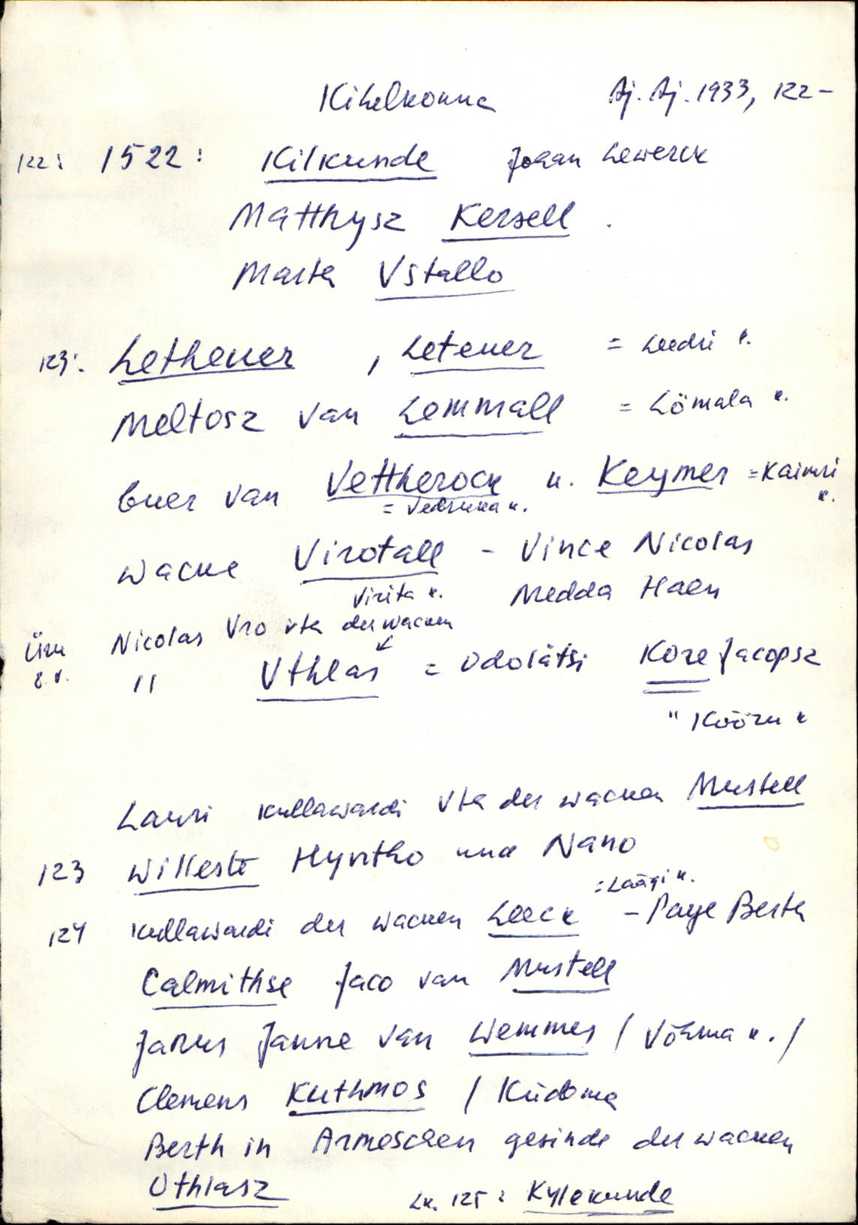 Kihelkonna Aj. Aj. 1933, 122-
122: 1522: Kilkunde Johan Lewerck
Matthysz Kersell.
Marth Vstallo
123: Letheuer, Leteuer = Leedri k.
Meltosz van Lemmall = Lõmala k.
buer van Vettherock u. Keymer = Kaimri k.
= Vedruka k.
wacke Virotall - Vince Nicolas
Virita k. Medda Haen
Nicolas Vro vth der wacken
" Uthlas = Odolätsi Kore Jacopsz
" Kõõru k
Lauri kullawardi vth der wacken Mustell
123 Willestе Hyntho und Nano
= Läägi k.
124 kullawardi der wacken Leeck - Paye Berth
Calmithse Jaco van Mustell
Janus Janne van Wemmes / Võhma k. /
Clemens Kuthmos / Küdema
Berth in Armoschen gesinde der wacken
Othlasz Lk. 125: Kylekunde